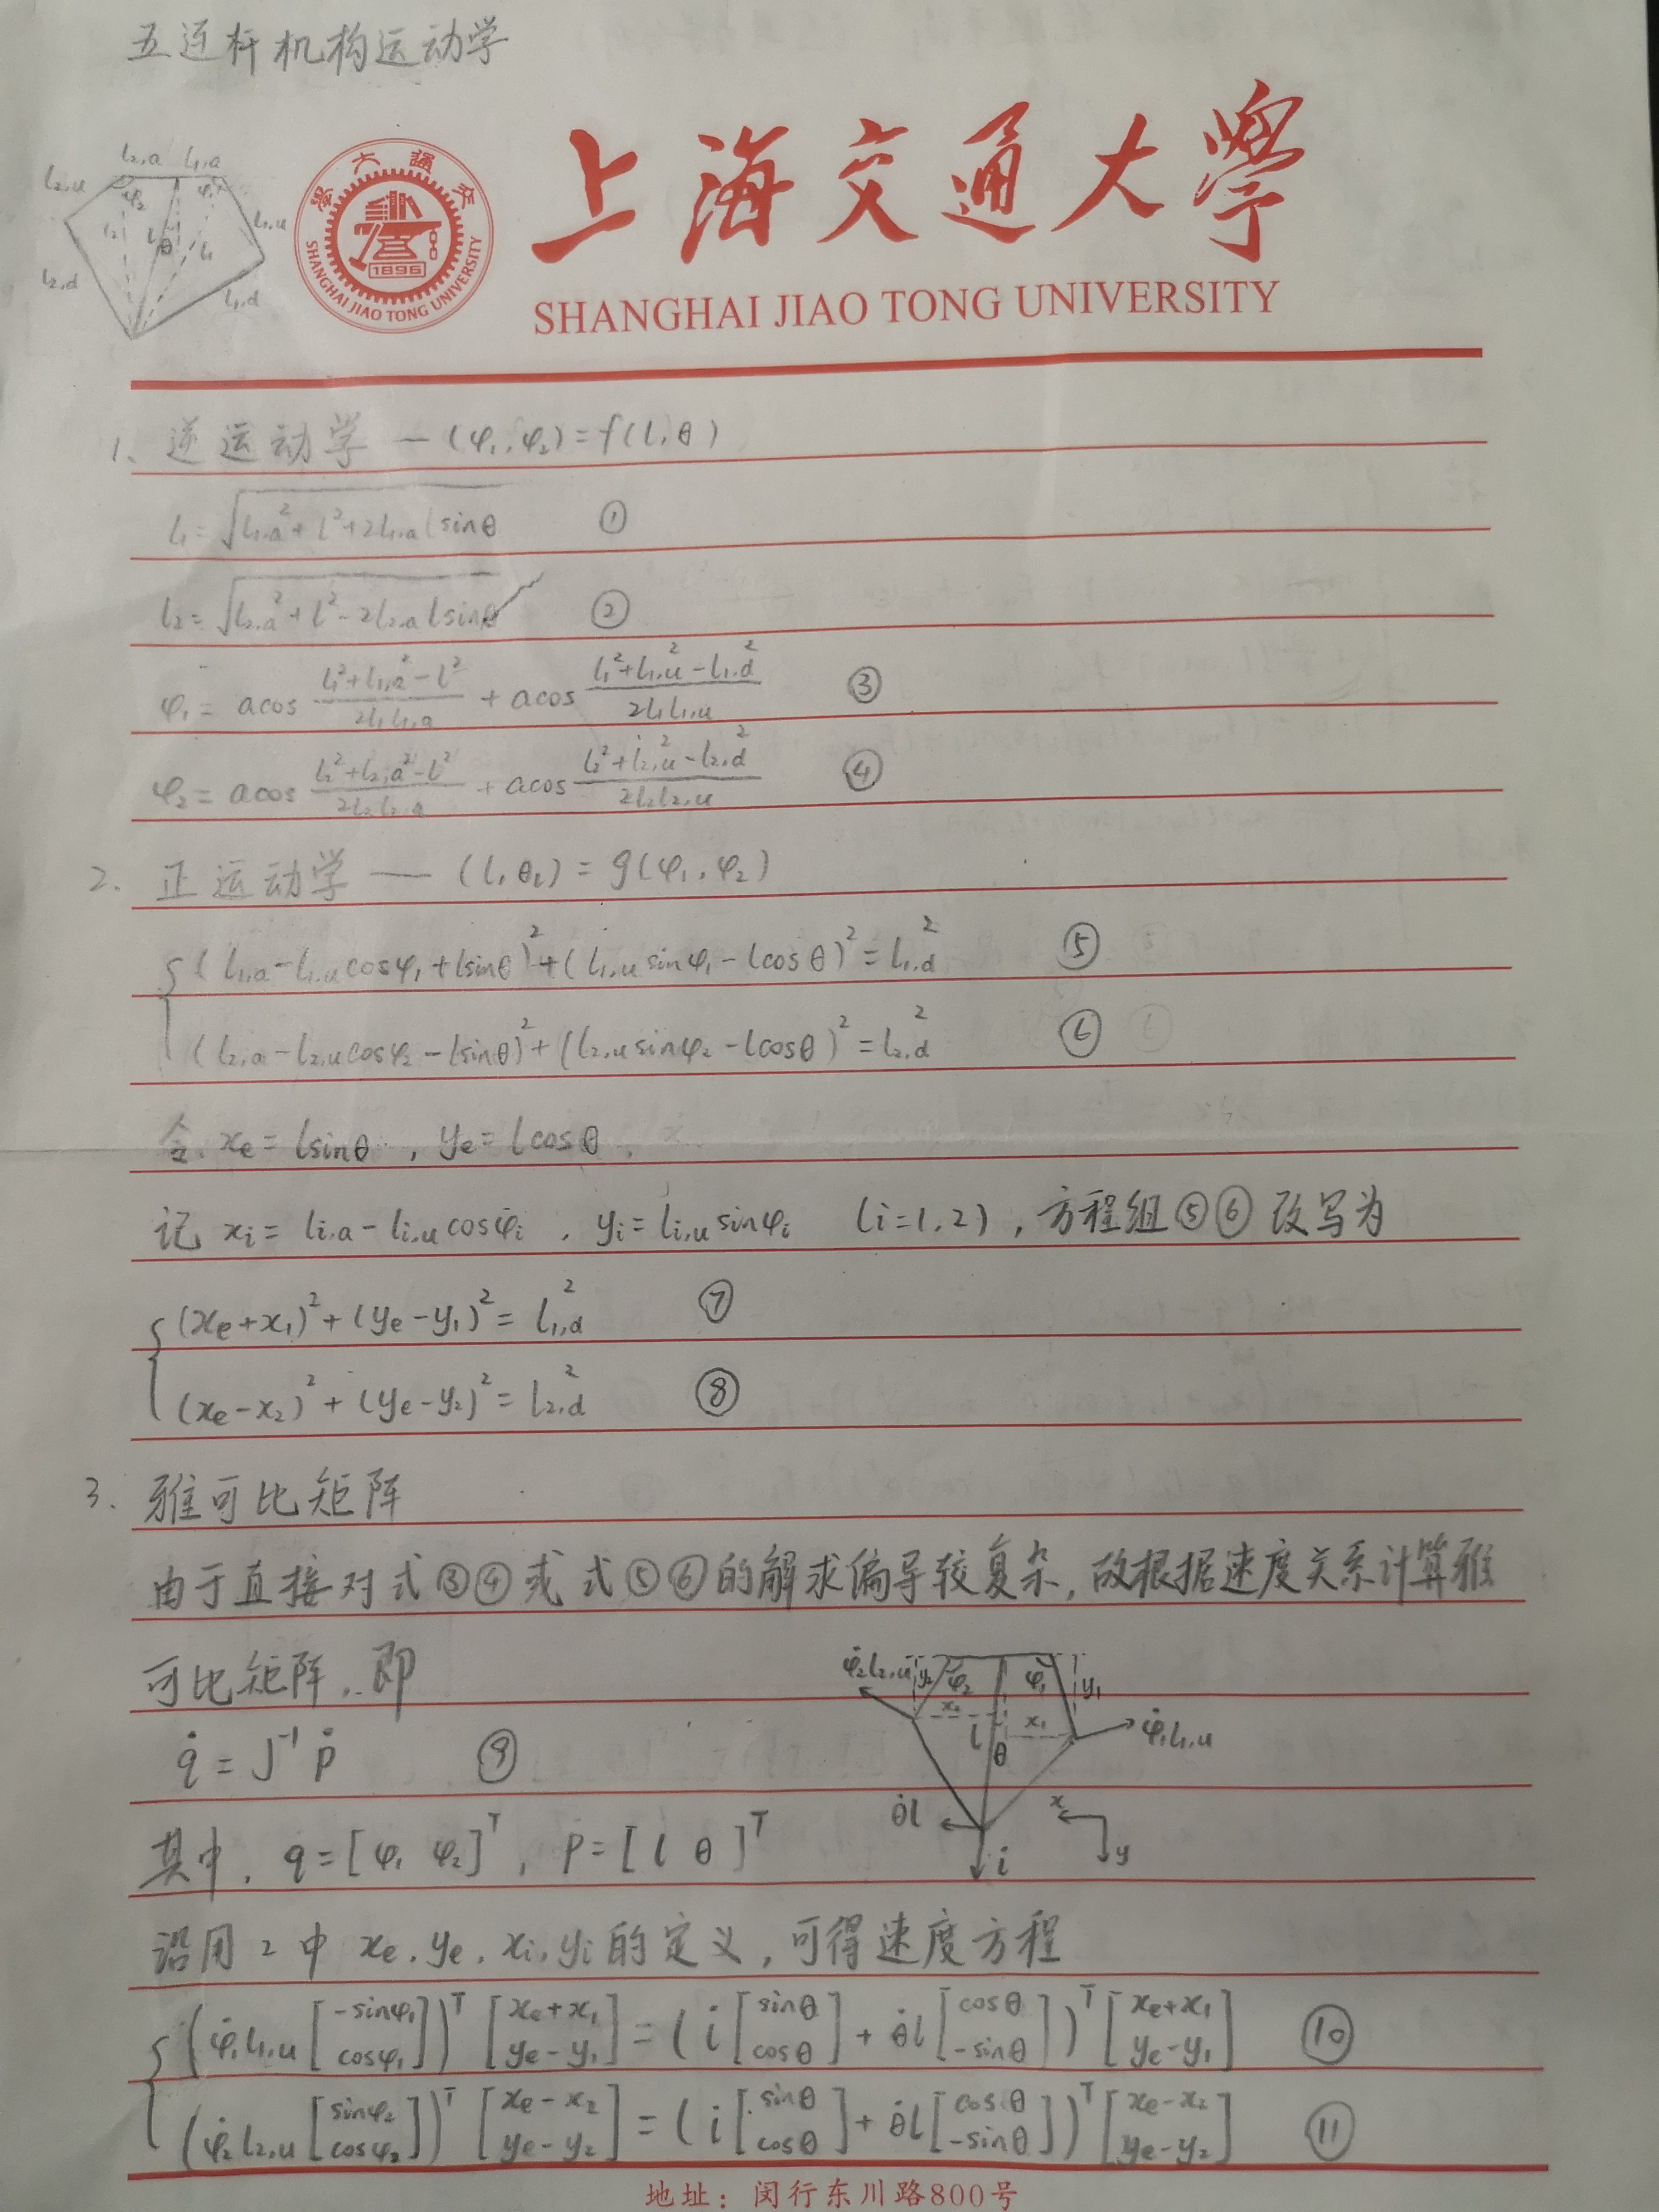 五连杆机构运动学
上海交通大學
SHANGHAI JIAO TONG UNIVERSITY
學大通交
1896
SHANGHAI JIAO TONG UNIVERSITY
l₂,a l₁,a
l₂,u φ₂ φ₁ l₁,u
l₂ l θ l₁
l₂,d l₁,d
1、逆运动学 — (φ₁, φ₂) = f(l, θ)
l₁ = √(l₁,a² + l² + 2l₁,a l sinθ) ①
l₂ = √(l₂,a² + l² - 2l₂,a l sinθ) ②
φ₁ = acos (l₁² + l₁,a² - l²)/(2l₁l₁,a) + acos (l₁² + l₁,u² - l₁,d²)/(2l₁l₁,u) ③
φ₂ = acos (l₂² + l₂,a² - l²)/(2l₂l₂,a) + acos (l₂² + l₂,u² - l₂,d²)/(2l₂l₂,u) ④
2. 正运动学 — (l, θ_l) = g(φ₁, φ₂)
(l₁,a - l₁,u cosφ₁ + l sinθ)² + (l₁,u sinφ₁ - l cosθ)² = l₁,d² ⑤
(l₂,a - l₂,u cosφ₂ - l sinθ)² + (l₂,u sinφ₂ - l cosθ)² = l₂,d² ⑥
令 xe = l sinθ , ye = l cosθ ,
记 xi = li,a - li,u cosφi , yi = li,u sinφi (i=1,2) , 方程组⑤⑥改写为
(xe + x₁)² + (ye - y₁)² = l₁,d² ⑦
(xe - x₂)² + (ye - y₂)² = l₂,d² ⑧
3. 雅可比矩阵
由于直接对式③④或式⑤⑥的解求偏导较复杂, 故根据速度关系计算雅
可比矩阵, 即
q̇ = J⁻¹ ṗ ⑨
φ̇₂l₂,u y₂ φ₂ φ₁ y₁
x₂ l θ x₁ φ̇₁l₁,u
θ̇l l̇ x y
其中, q = [φ₁ φ₂]ᵀ, p = [l θ]ᵀ
沿用2中 xe, ye, xi, yi 的定义, 可得速度方程
(φ̇₁l₁,u [-sinφ₁; cosφ₁])ᵀ [xe + x₁; ye - y₁] = (l̇ [sinθ; cosθ] + θ̇l [cosθ; -sinθ])ᵀ [xe + x₁; ye - y₁] ⑩
(φ̇₂l₂,u [sinφ₂; cosφ₂])ᵀ [xe - x₂; ye - y₂] = (l̇ [sinθ; cosθ] + θ̇l [cosθ; -sinθ])ᵀ [xe - x₂; ye - y₂] ⑪
地址：闵行东川路800号